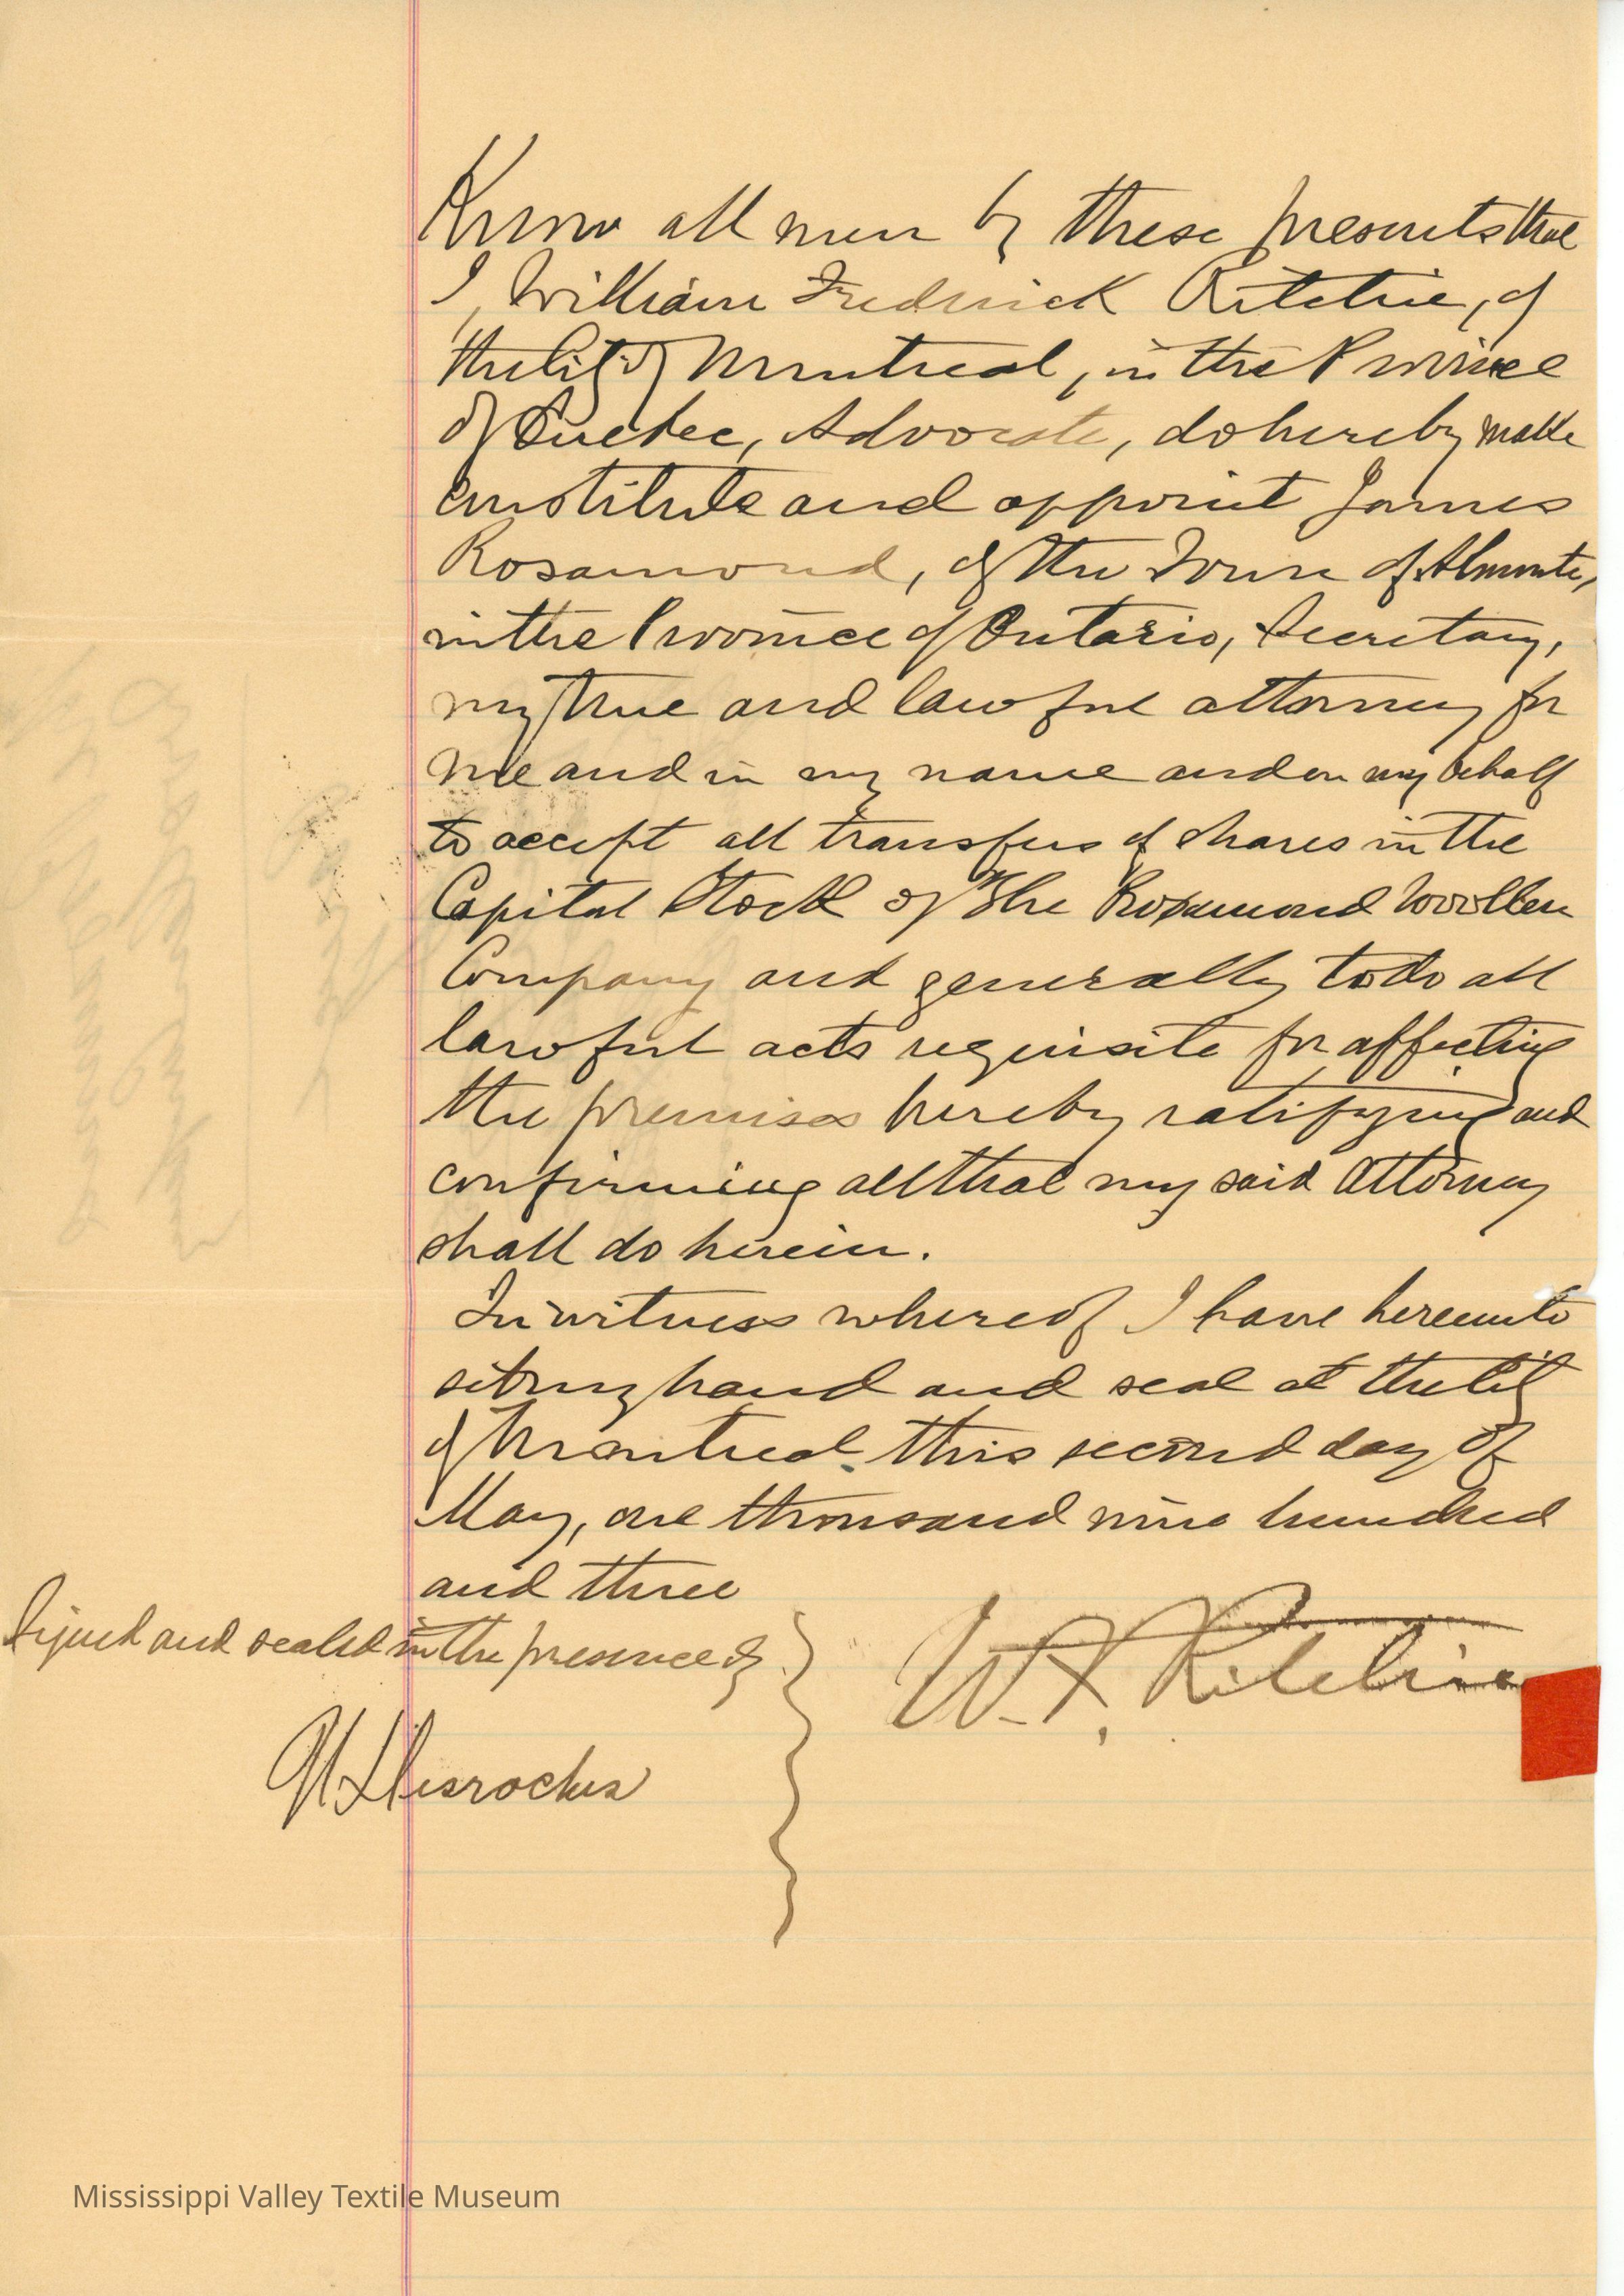 Know all men by these presents that
I, William Frederick Ritchie, of
the City of Montreal, in the Province
of Quebec, Advocate, do hereby make
constitute and appoint James
Rosamond, of the Town of Almonte,
in the Province of Ontario, Secretary,
my true and lawful attorney for
me and in my name and on my behalf
to accept all transfers of shares in the
Capital Stock of The Rosamond Woollen
Company and generally to do all
lawful acts requisite for affecting
the premises hereby ratifying and
confirming all that my said Attorney
shall do herein.
In witness whereof I have hereunto
set my hand and seal at the City
of Montreal this second day of
May, one thousand nine hundred
and three
Signed and sealed in the presence of
W. F. Ritchie
Desroches
Mississippi Valley Textile Museum